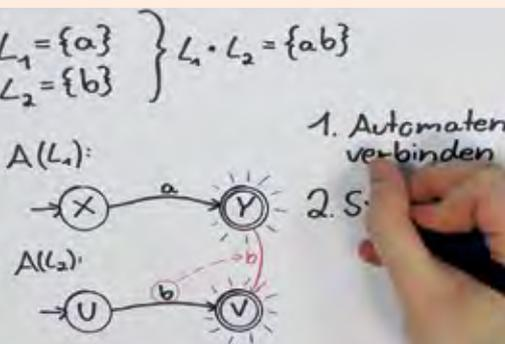 L₁ = {a}
L₂ = {b}
} L₁ · L₂ = {ab}
1. Automaten
verbinden
A(L₁):
X
a
Y
2. S
b
A(L₂):
U
b
V